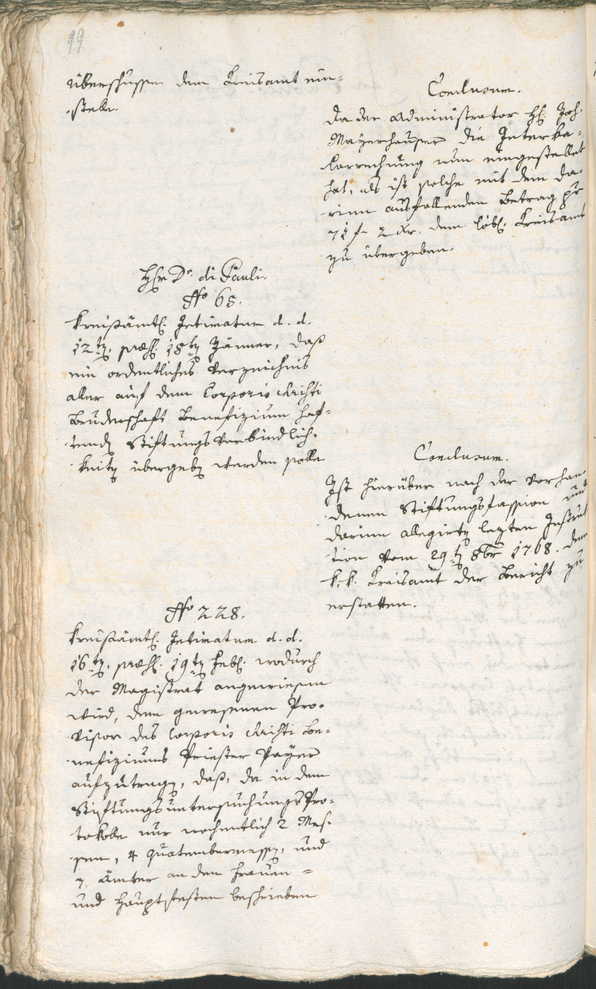 99
überschüssen dem Kreisamt ein-
stele.
Conclusum.
Da der Administrator H. Joh.
Mayerhauser die Interka-
larrechnung nun eingestellet
hat, als ist solche mit dem da-
rinn ausfallenden Betrag pr
71 f 2 Kr. dem löbl. Kreisamt
zu übergeben.
Hr. Dr. di Pauli.
No 65.
Kreisämtl. Intimatum d. d.
12tn, præs. 18tn Jänner, daß
ein ordentliches Verzeichnis
aller auf dem Corporis Christi
Bruderschaft Benefizium haf-
tendn Stiftungs Verbindlich-
keitn übergebn werden solle
Conclusum.
Ist hierüber nach der vorhan-
denen Stiftungsfassion und
darinn allegirtn lezten
tion vom 29tn 8br 1768. dem
k. k. Kreisamt der Bericht zu
erstatten.
No 228.
Kreisämtl. Intimatum d. d.
16tn, præs. 19tn Feb. wodurch
der Magistrat angewiesen
wird, dem gewesenen Pro-
visor des Corporis Christi Be-
nefiziums Priester Payer
aufzutragn, daß, da in dem
Stiftungsuntersuchungs Pro-
tokolle nur wochentlich 2 Mes-
sen, 4 Quatembermessn, und
7 Ämter an den Frauen-
und Hauptfesten beschrieben